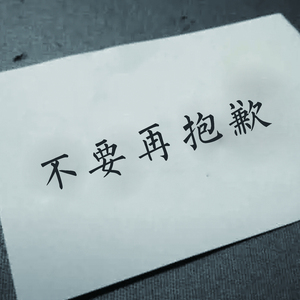 不要再抱歉